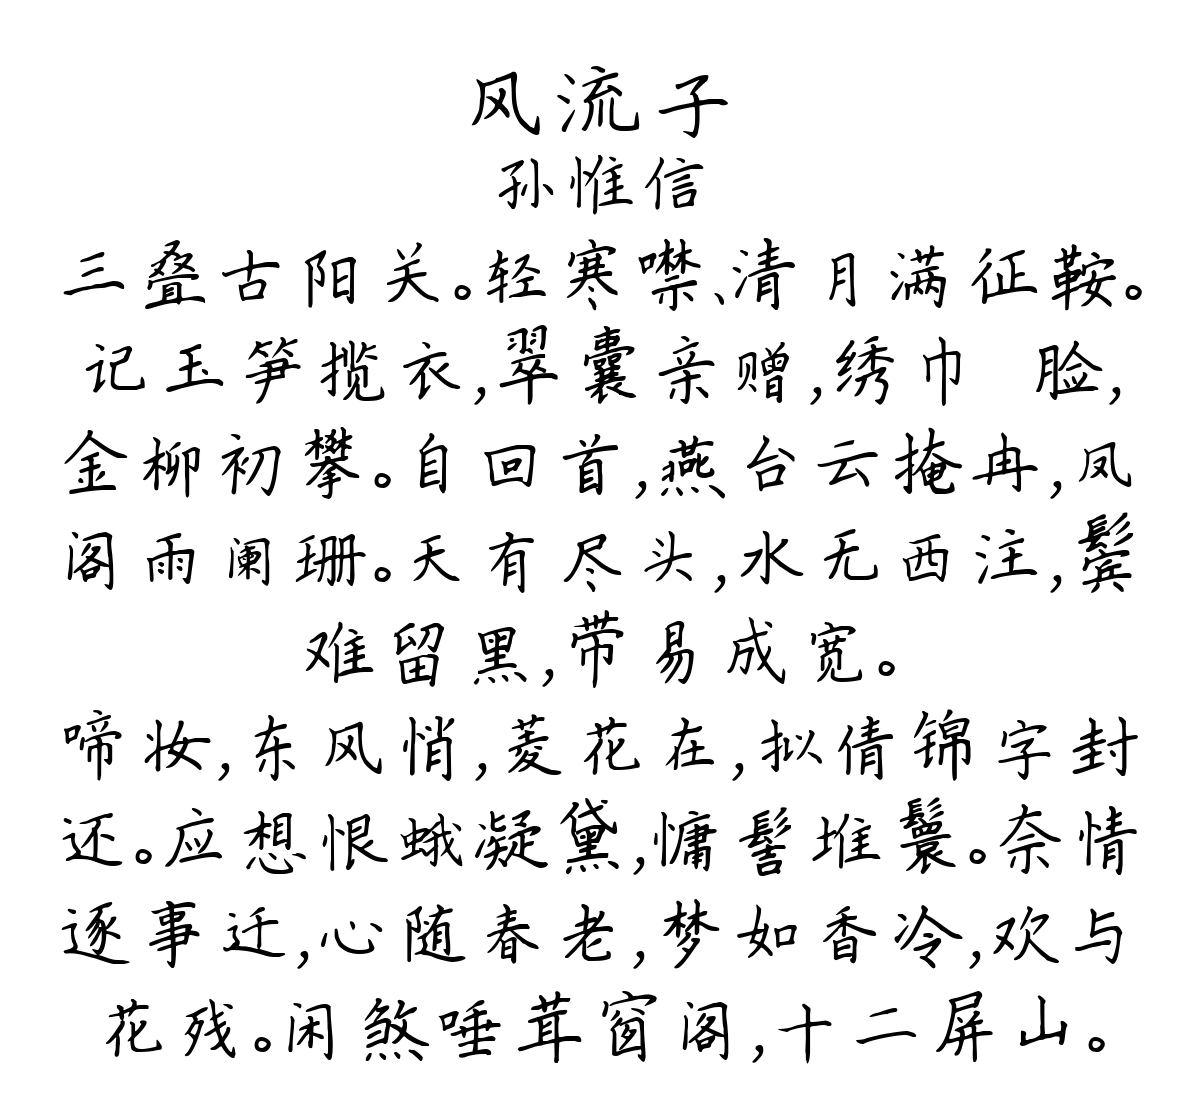 风流子
孙惟信
三叠古阳关。轻寒噤、清月满征鞍。
记玉笋揽衣,翠囊亲赠,绣巾 脸,
金柳初攀。自回首,燕台云掩冉,凤
阁雨阑珊。天有尽头,水无西注,鬓
难留黑,带易成宽。
啼妆,东风悄,菱花在,拟倩锦字封
还。应想恨蛾凝黛,慵髻堆鬟。奈情
逐事迁,心随春老,梦如香冷,欢与
花残。闲煞唾茸窗阁,十二屏山。